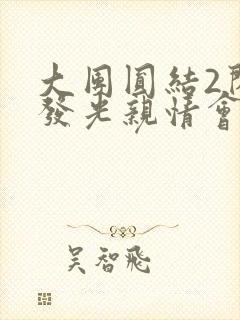 大團圓結2
發光親情會
吳智飛